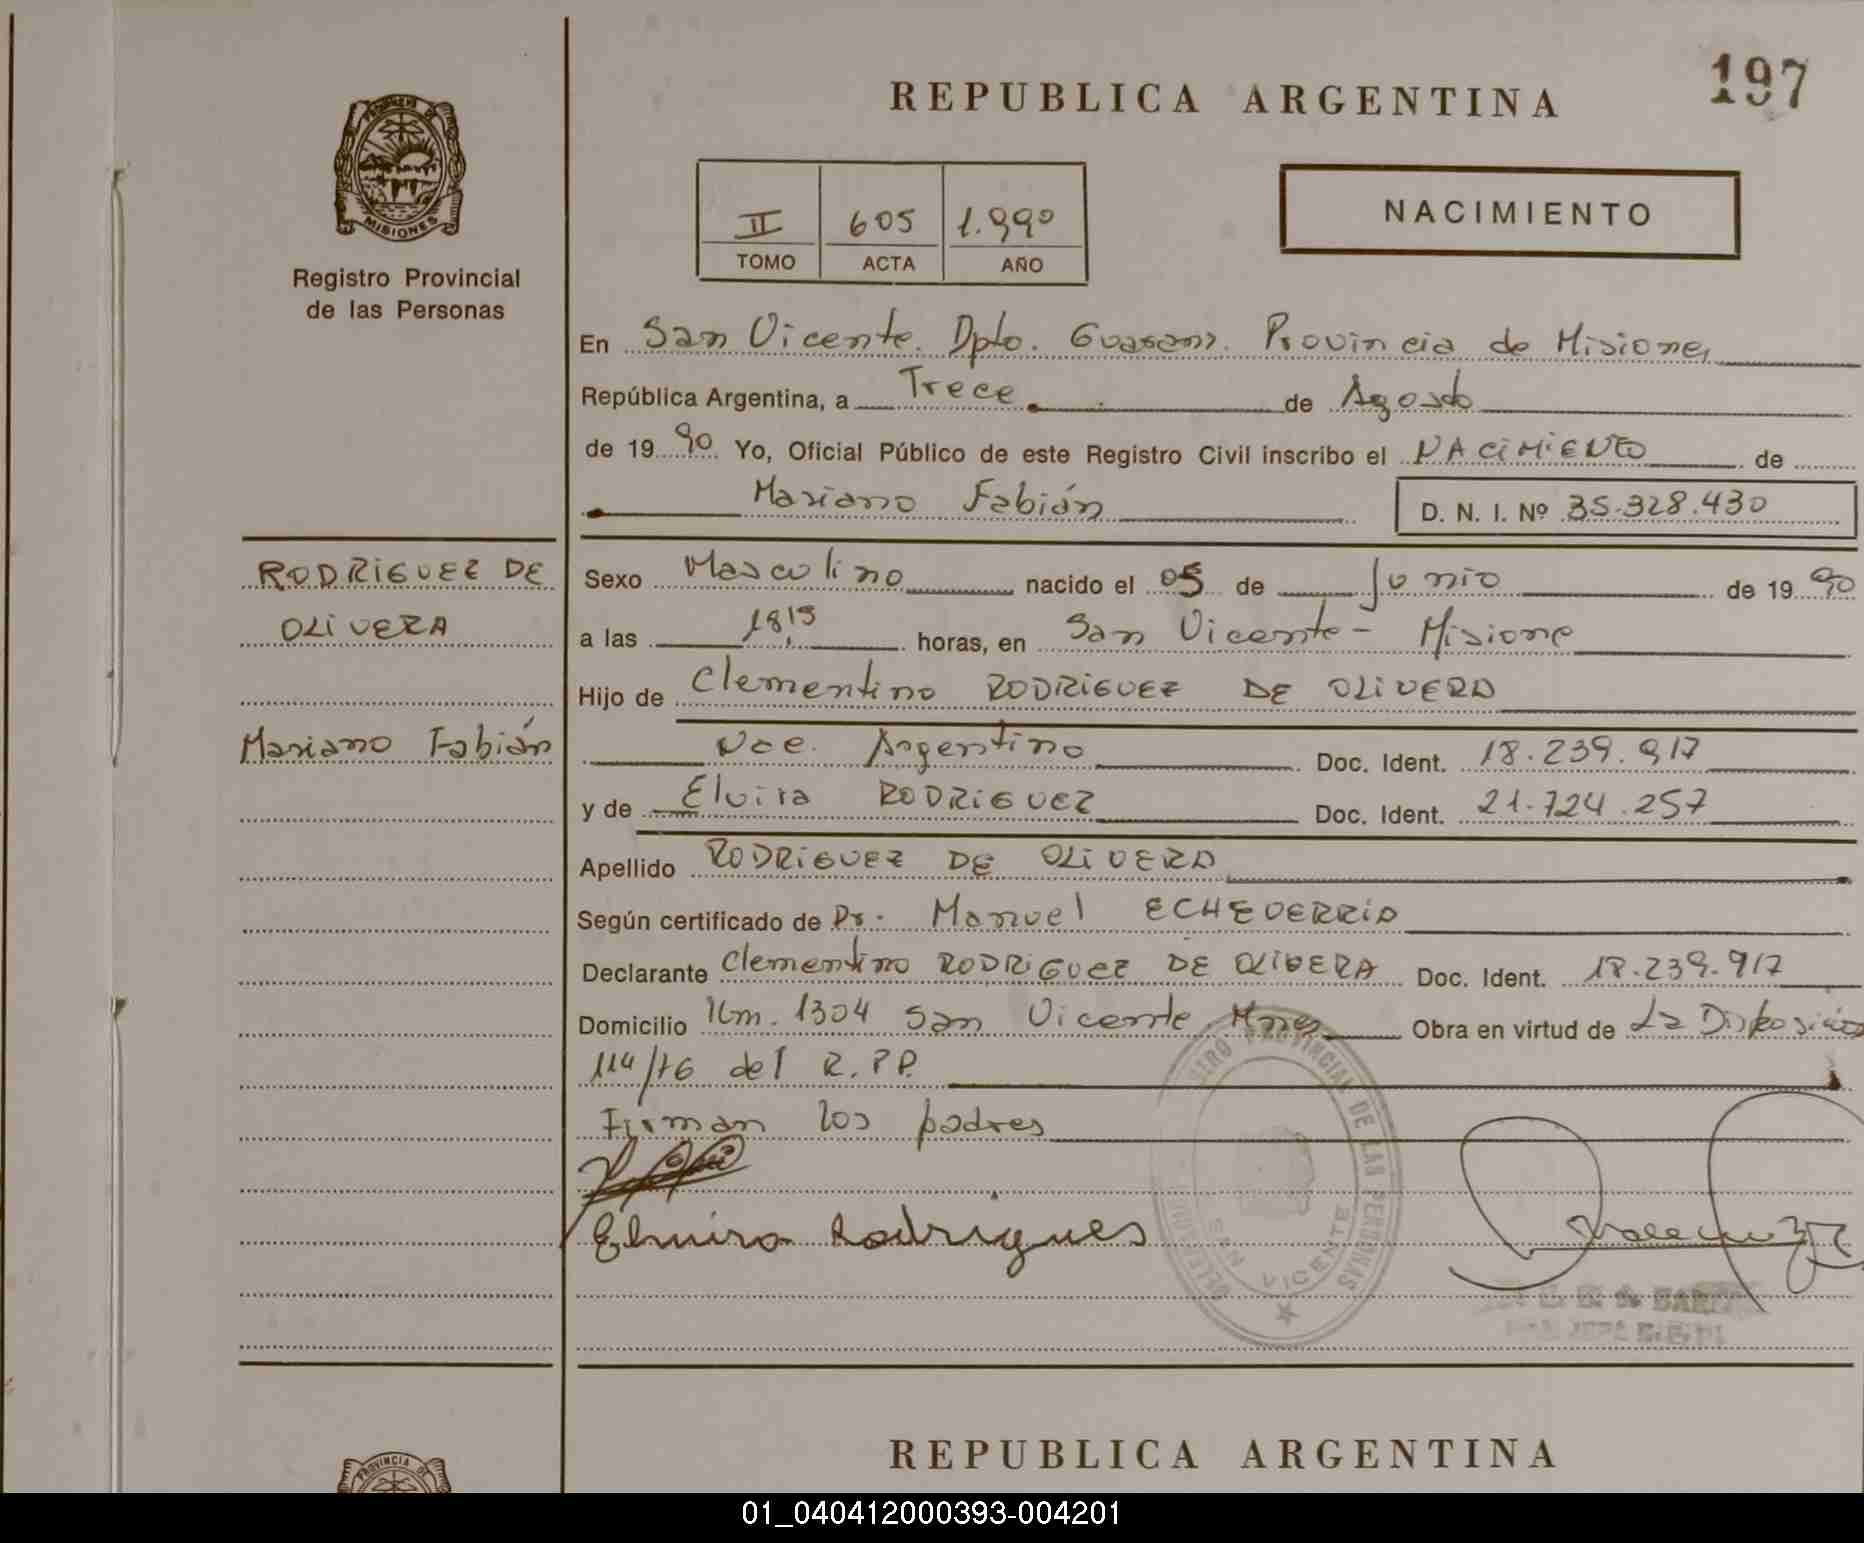 197
REPUBLICA ARGENTINA
PROVINCIA DE
MISIONES
Registro Provincial
de las Personas
II 605 1.990
TOMO ACTA AÑO
NACIMIENTO
En San Vicente. Dpto. Guarani. Provincia de Misiones
República Argentina, a Trece de Agosto
de 19 90 Yo, Oficial Público de este Registro Civil inscribo el NACIMIENTO de
Mariano Fabián D. N. I. Nº 35.328.430
RODRIGUEZ DE
OLIVERA
Mariano Fabián
Sexo Masculino nacido el 05 de Junio de 19 90
a las 18,15 horas, en San Vicente - Misione
Hijo de Clementino RODRIGUEZ DE OLIVERA
Nac. Argentino Doc. Ident. 18.239.917
y de Elvira RODRIGUEZ Doc. Ident. 21.724.257
Apellido RODRIGUEZ DE OLIVERA
Según certificado de Dr. Manuel ECHEVERRIA
Declarante Clementino RODRIGUEZ DE OLIVERA Doc. Ident. 18.239.917
Domicilio Km. 1304 San Vicente Mnes Obra en virtud de La Disposición
114/76 del R.P.P.
Firman los padres
Elmira Rodrigues
PROVINCIAL DE LAS PERSONAS
SAN VICENTE
REPUBLICA ARGENTINA
PROVINCIA DE
01_040412000393-004201